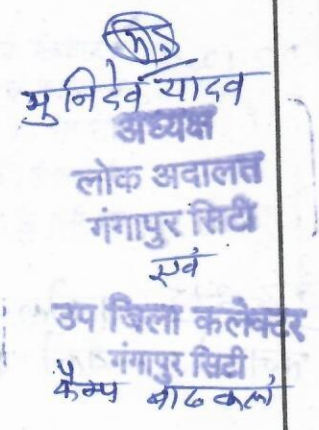 मुनिदेव यादव
अध्यक्ष
लोक अदालत
गंगापुर सिटी
एवं
उप जिला कलेक्टर
गंगापुर सिटी
कैम्प बाढ कलां